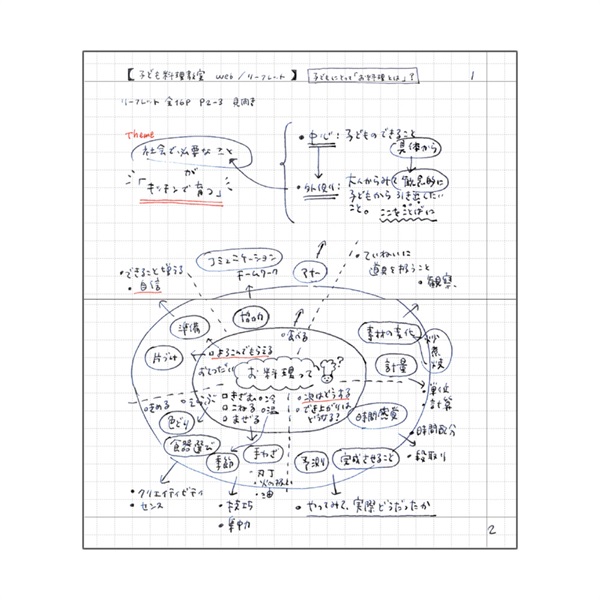 【子ども料理教室 web/リーフレット】
子どもにとって「お料理とは」?
1
リーフレット 全16P P2-3 見開き
Theme
社会で必要なこと
が
「キッチンで育つ」
・中心:子どものできること
具体から
・外側:大人からみて観念的に
子どもから引き出したい
こと。ここをことばに
コミュニケーション
チームワーク
マナー
・ていねいに
道具を扱うこと
・観察
・できることが増える
・自信
準備
協力
食べる
素材の変化
炒
煮
焼
片づけ
よろこんでもらえる
おてつだい
お料理って
?
計量
・単位
計算
・きめる
えらぶ
きざむ
こねる
まぜる
冷
温
次はどうする
でき上がりは
どうなる?
時間感覚
・時間配分
・段取り
色どり
食器選び
季節
手わざ
・刃丁
・火の扱い
・油
予測
完成させること
・クリエイティビティ
・センス
・技巧
・集中
・やってみて、実際どうだったか
2